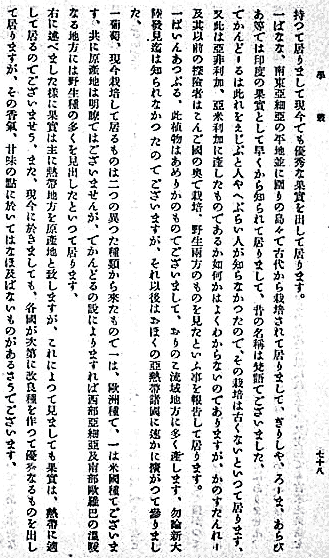 學叢
七十八
持つて居りまして現今でも優秀な果實を出して居ります。
一ばなな、南東亞細亞の本地並に圍りの島々で古代から栽培されて居りまして、ぎりしや、ろーま、あらび
あ等では印度の果實として早くから知られて居りまして、昔の名稱は梵語でございました。
でかんどーるは此れをえじぷと人やへぶらい人が知らなかつたので、その栽培は古くないといつて居ります、
又此は亞非利加、亞米利加に產したものであるか如何かはよくわからないのでありますが、かのすたんれー
及其以前の探險者はこんご國の奥で栽培、野生兩方のものを見たといふ事を報告して居ります。
一ぱいんあつぷる、此植物はあめりかのものでございまして、おりのこ流域地方に多く產します、勿論新大
陸發見迄は知られなかつたのでございますが、それ以後はおほくの亞熱帶諸國に速かに擴がつて參りまし
た。
一葡萄、現今栽培して居るものは二つの異つた種類から來たもので一は、歐洲種で、一は米國種でございま
す、共に原產地は明瞭ではございませんが、でかんどるの說によりますれば西部亞細亞及南部歐羅巴の溫暖
なる地方には野生種の多くを見出したといつて居ります。
右に述べました樣に果實は主に熱帶地方を原產地と致しますが、これによつて見ましても果實は、熱帶に適
して居るのでございませう。また、現今に於きましても、各國が次第に改良種を作つて優秀なるものを出し
て居りますが、その香氣、甘味の點に於いてはなほ及ばないものがあるさうでございます。